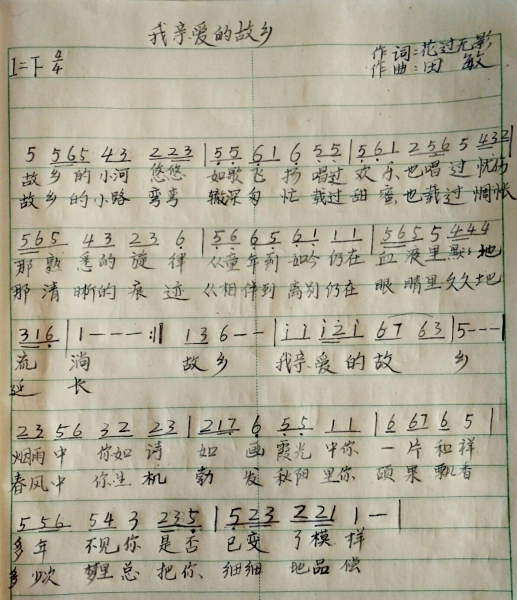 我亲爱的故乡
1=F 4/4
作词:花过无影
作曲:田 敏
5 565 43 223 | 55 61 6 55 | 561 256 5 432 |
故乡的小河 悠悠 如歌飞扬 唱过欢乐,也唱过忧伤
故乡的小路 弯弯 辙深匆忙 载过甜蜜,也载过惆怅
565 43 23 6 | 56 65 61 11 | 565 5 444
那熟悉的旋律 从童年到如今仍在血液里默默地
那清晰的痕迹 从相伴到离别仍在眼睛里久久地
316 | 1---- :|| 136-- | i i i 2 i 67 63 | 5--- |
流淌 故乡 我亲爱的故乡
延长
23 56 32 23 | 217 6 55 11 | 6 67 6 5 |
烟雨中 你如诗如画 霞光中你 一片和祥
春风中 你生机勃发 秋阳里你 硕果飘香
5 56 54 3 235 | 523 221 1- |
多年 不见你是否已变了模样
多少次 梦里总把你细细地品偿